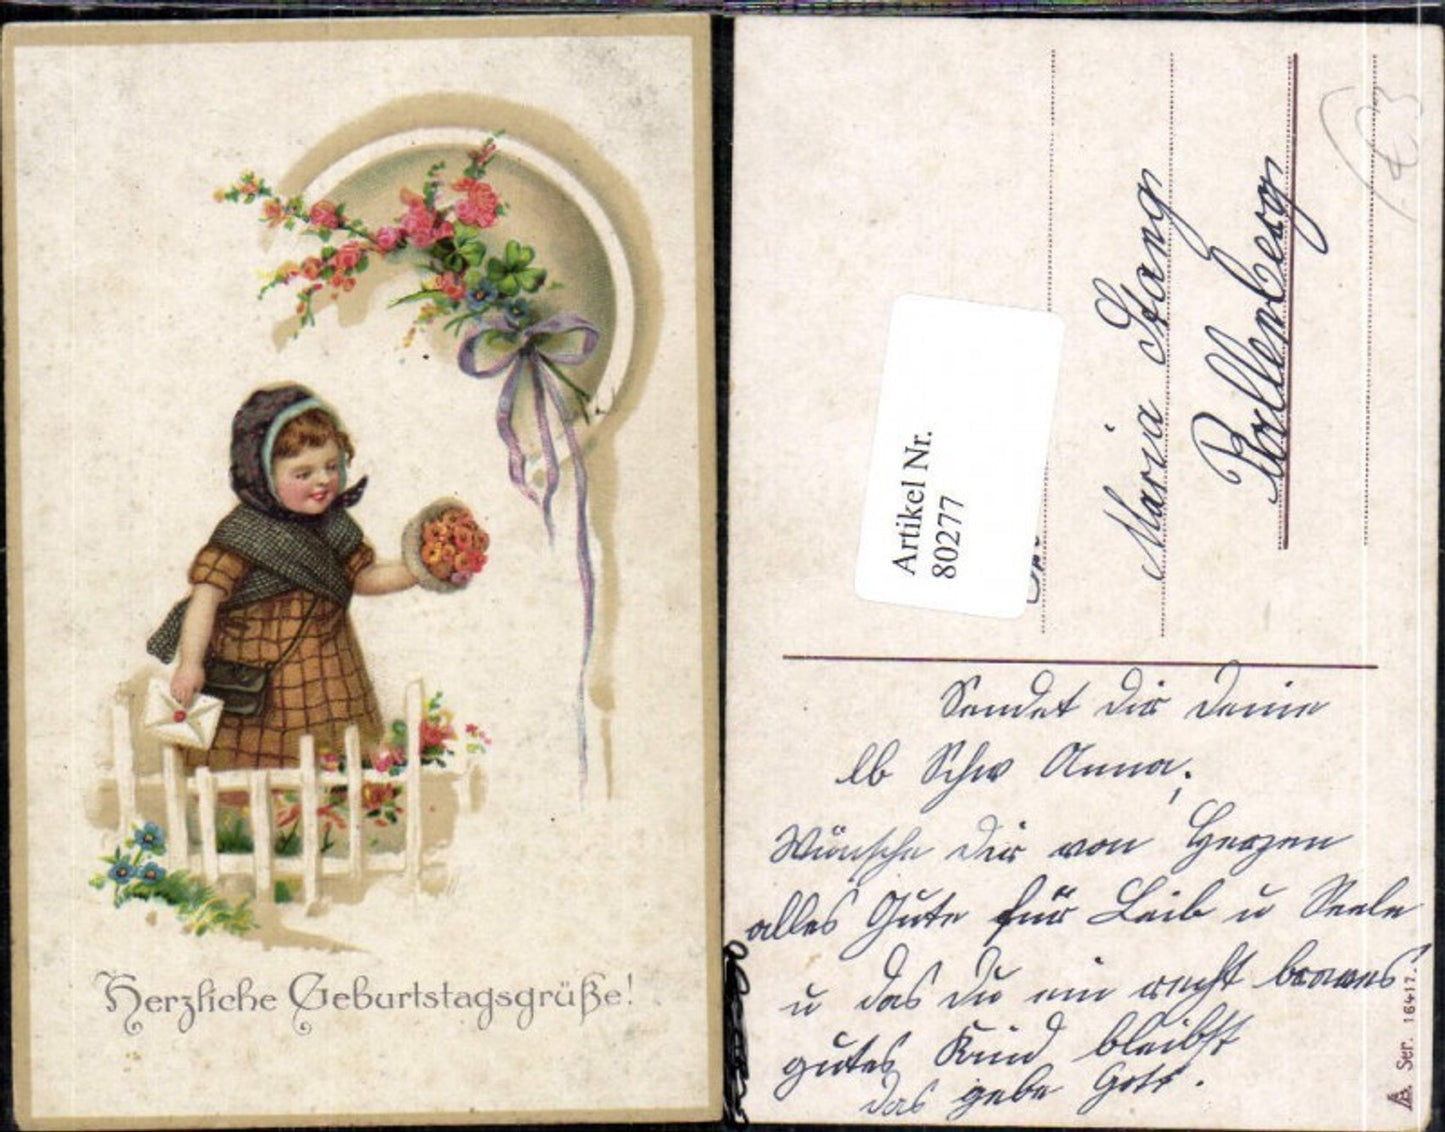 Herzliche Geburtstagsgrüße!
Artikel Nr.
80277
Maria Stang
Bollenberg
Sendet dir deine
lb Schw Anna,
Wünsche dir von Herzen
alles Gute für Leib u Seele
u das du ein recht braves
gutes Kind bleibst
das gebe Gott.
Ser. 16417.